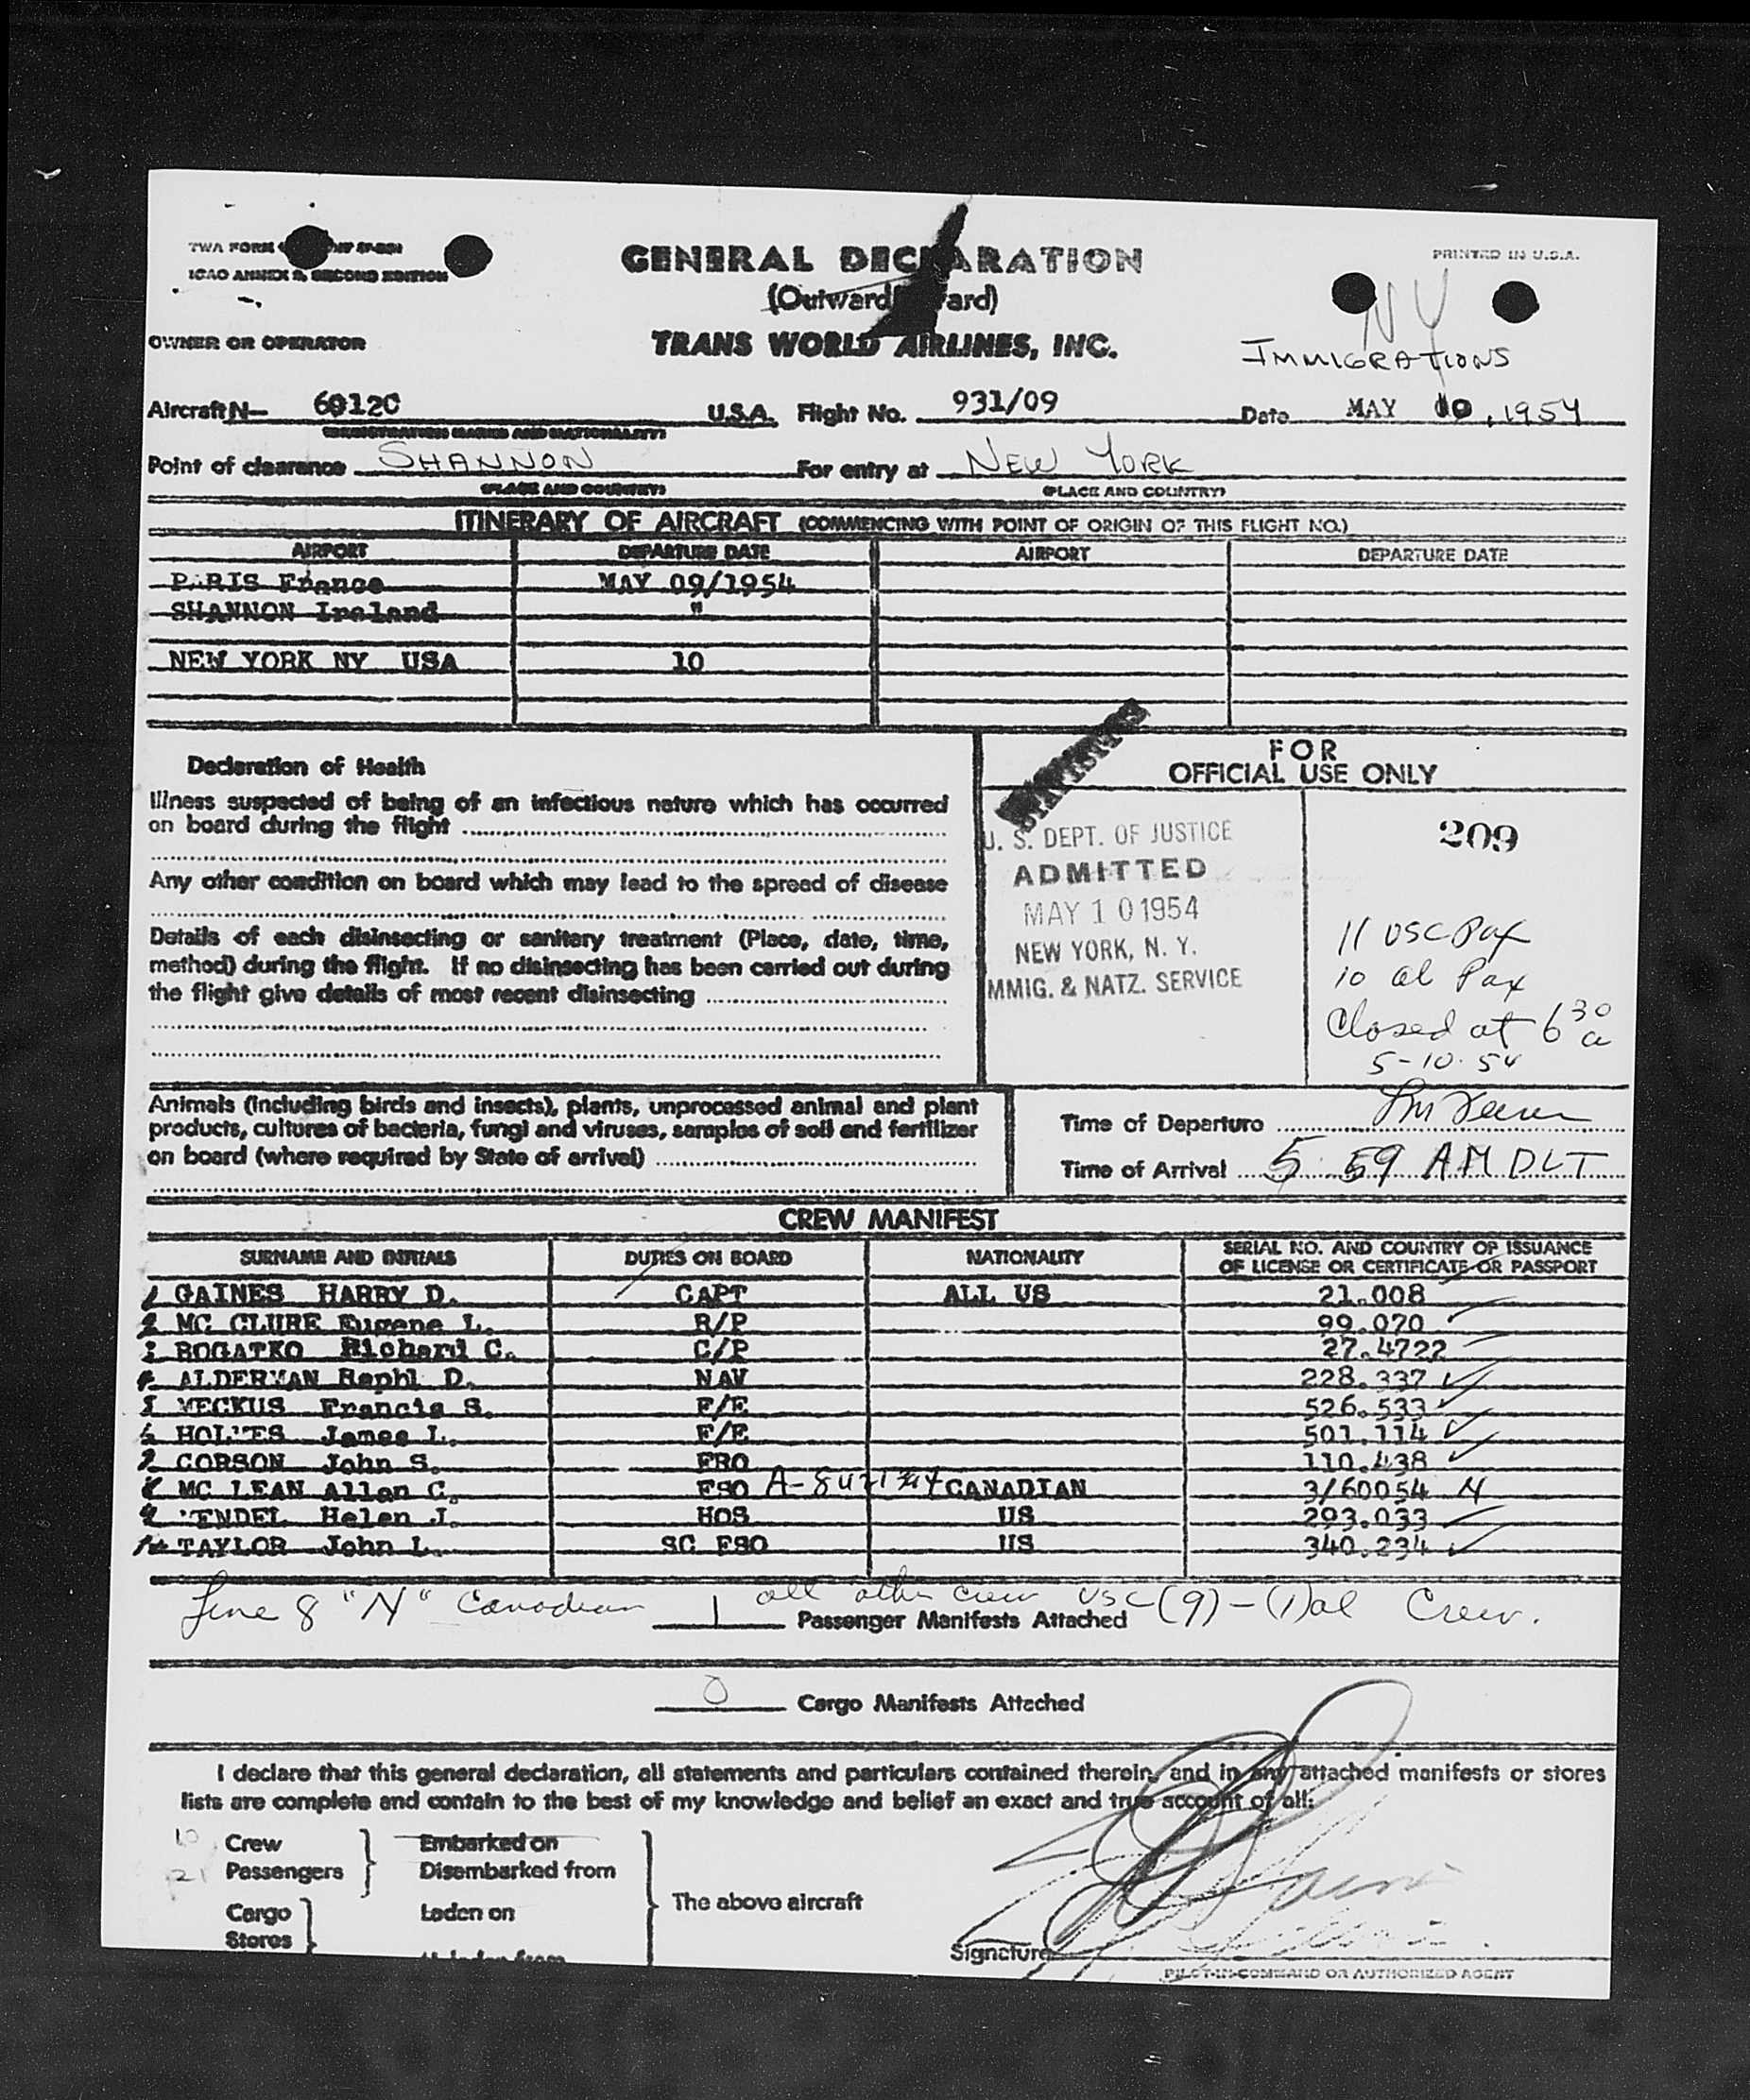 TWA FORM
ICAO ANNEX 9, SECOND EDITION
GENERAL DECLARATION
PRINTED IN U.S.A.
(Outward ard)
NY
IMMIGRATIONS
OWNER OR OPERATOR
TRANS WORLD AIRLINES, INC.
Aircraft N- 6012C U.S.A. Flight No. 931/09 Date MAY 10, 1954
(REGISTRATION MARKS AND NATIONALITY)
Point of clearance SHANNON For entry at NEW YORK
(PLACE AND COUNTRY) (PLACE AND COUNTRY)
ITINERARY OF AIRCRAFT (COMMENCING WITH POINT OF ORIGIN OF THIS FLIGHT NO.)
AIRPORT DEPARTURE DATE AIRPORT DEPARTURE DATE
PARIS France MAY 09/1954
SHANNON Ireland "
NEW YORK NY USA 10
Declaration of Health
Illness suspected of being of an infectious nature which has occurred
on board during the flight
Any other condition on board which may lead to the spread of disease
Details of each disinsecting or sanitary treatment (Place, date, time,
method) during the flight. If no disinsecting has been carried out during
the flight give details of most recent disinsecting
FOR
OFFICIAL USE ONLY
U. S. DEPT. OF JUSTICE
ADMITTED
MAY 10 1954
NEW YORK, N. Y.
IMMIG. & NATZ. SERVICE
209
11 USC Pax
10 al Pax
Closed at 6 30 a
5-10-54
Animals (including birds and insects), plants, unprocessed animal and plant
products, cultures of bacteria, fungi and viruses, samples of soil and fertilizer
on board (where required by State of arrival)
Time of Departure
Time of Arrival 5 59 AM DLT
CREW MANIFEST
SURNAME AND INITIALS DUTIES ON BOARD NATIONALITY SERIAL NO. AND COUNTRY OF ISSUANCE
OF LICENSE OR CERTIFICATE OR PASSPORT
1 GAINES HARRY D. CAPT ALL US 21.008
2 MC CLURE Eugene L. R/P 99.070
3 BOGATKO Richard C. C/P 27.4722
4 ALDERMAN Raphl D. NAV 228.337
5 MECKUS Francis S. F/E 526.533
6 HOLMES James L. F/E 501.114
7 CORSON John S. FRO 110.438
8 MC LEAN Allen C. FSO CANADIAN 3/60054 N
9 WENDEL Helen J. HOS US 293.033
10 TAYLOR John L. SC FSO US 340.234
Line 8 "N" Canadian all other crew USC (9) - (1) al Crew.
1 Passenger Manifests Attached
0 Cargo Manifests Attached
I declare that this general declaration, all statements and particulars contained therein, and in any attached manifests or stores
lists are complete and contain to the best of my knowledge and belief an exact and true account of all:
10 Crew Embarked on
21 Passengers Disembarked from
The above aircraft
Cargo Laden on
Stores
Signature
PILOT-IN-COMMAND OR AUTHORIZED AGENT